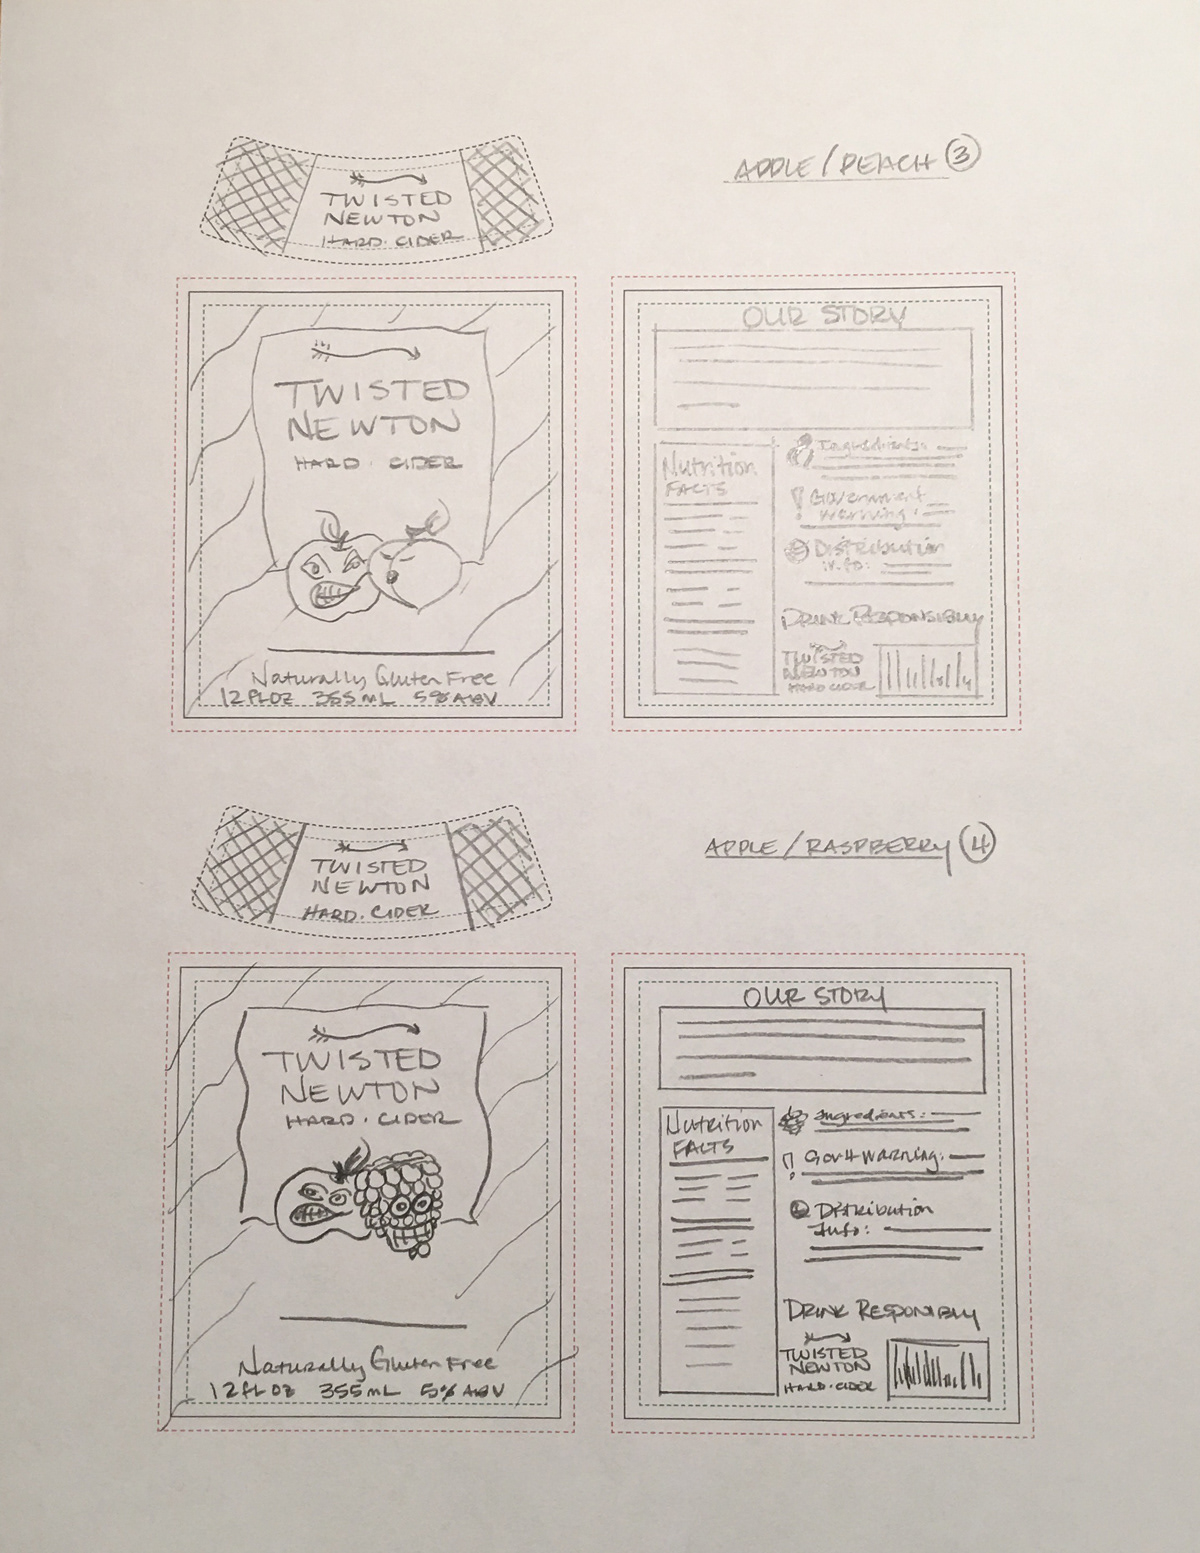 APPLE/PEACH 3
TWISTED
NEWTON
HARD · CIDER
TWISTED
NEWTON
HARD · CIDER
Naturally Gluten Free
12 FL OZ 355 mL 5% ABV
OUR STORY
Nutrition
FACTS
Ingredients:
! Government
Warning:
Distribution
info:
DRINK RESPONSIBLY
TWISTED
NEWTON
HARD CIDER
APPLE/RASPBERRY 4
TWISTED
NEWTON
HARD · CIDER
TWISTED
NEWTON
HARD · CIDER
Naturally Gluten Free
12 FL OZ 355 mL 5% ABV
OUR STORY
Nutrition
FACTS
Ingredients:
! Gov't Warning:
Distribution
Info:
DRINK RESPONIBLY
TWISTED
NEWTON
HARD · CIDER